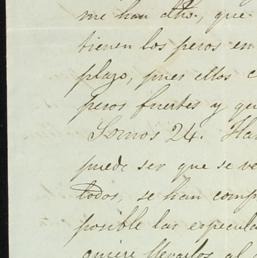 me han dho, que
tienen los peros en
plazo, pues ellos c
peros fuertes y qu
Somos 24. Ha
puede ser que se ve
todos, se han comp
posible las especula
quiere llevarlos al